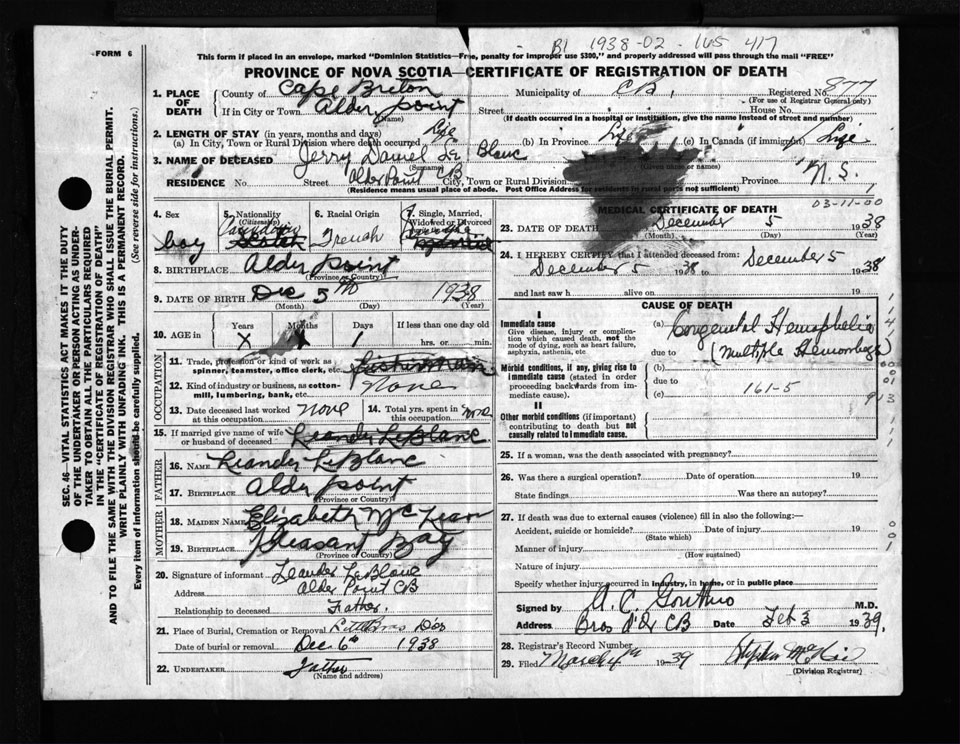 B1 1938-02-165 417
FORM 6
This form if placed in an envelope, marked "Dominion Statistics—Free, penalty for improper use $300," and properly addressed will pass through the mail "FREE"
PROVINCE OF NOVA SCOTIA—CERTIFICATE OF REGISTRATION OF DEATH
1. PLACE OF DEATH
County of Cape Breton Municipality of CB, Registered No 877
(For use of Registrar General only)
If in City or Town Alder point Street House No
(Name) (If death occurred in a hospital or institution, give the name instead of street and number)
2. LENGTH OF STAY (in years, months and days)
(a) In City, Town or Rural Division where death occurred Life (b) In Province Life (c) In Canada (if immigrant) Life
3. NAME OF DECEASED Jerry Daniel Le Blanc
(Surname) (Given name or names)
RESIDENCE No Street Alder Point CB City, Town or Rural Division Province N.S.
(Residence means usual place of abode. Post Office Address for residents in rural parts not sufficient)
03-11-00
4. Sex 5. Nationality (Citizenship) 6. Racial Origin 7. Single, Married, Widowed or Divorced
boy Canadian French
8. BIRTHPLACE Alder point
(Province or Country)
9. DATE OF BIRTH Dec 5th 1938
(Month) (Day) (Year)
10. AGE in Years Months Days If less than one day old
X X 1 hrs. or min.
OCCUPATION
11. Trade, profession or kind of work as spinner, teamster, office clerk, etc. fisherman
12. Kind of industry or business, as cotton-mill, lumbering, bank, etc. None
13. Date deceased last worked at this occupation none 14. Total yrs. spent in this occupation none
15. If married give name of wife or husband of deceased Leander LeBlanc
FATHER
16. NAME Leander LeBlanc
17. BIRTHPLACE Alder point
(Province or Country)
MOTHER
18. MAIDEN NAME Elizabeth McLean
19. BIRTHPLACE Pleasant Bay
(Province or Country)
20. Signature of informant Leander LeBlanc
Address Alder Point CB
Relationship to deceased Father.
21. Place of Burial, Cremation or Removal Little Bras Dor
Date of burial or removal Dec 6th 1938
22. UNDERTAKER Father
(Name and address)
MEDICAL CERTIFICATE OF DEATH
23. DATE OF DEATH December 5 1938
(Month) (Day) (Year)
24. I HEREBY CERTIFY that I attended deceased from:
December 5 1938 to December 5 1938
and last saw h alive on 19
CAUSE OF DEATH
I
Immediate cause
Give disease, injury or complication which caused death, not the mode of dying, such as heart failure, asphyxia, asthenia, etc.
(a) Congenital Hemophelia
due to (Multiple Hemorrhages)
Morbid conditions, if any, giving rise to immediate cause (stated in order proceeding backwards from immediate cause).
(b)
due to 161-5
(c)
II
Other morbid conditions (if important) contributing to death but not causally related to immediate cause.
25. If a woman, was the death associated with pregnancy?
26. Was there a surgical operation? Date of operation 19
State findings Was there an autopsy?
27. If death was due to external causes (violence) fill in also the following:—
Accident, suicide or homicide? Date of injury 19
(State which)
Manner of injury
(How sustained)
Nature of injury
Specify whether injury occurred in industry, in home, or in public place
Signed by A. C. M.D.
Address Bras d'Or CB Date Feb 3 1939,
28. Registrar's Record Number
29. Filed March 4th 1939
(Division Registrar)
SEC. 46—VITAL STATISTICS ACT MAKES IT THE DUTY OF THE UNDERTAKER OR PERSON ACTING AS UNDERTAKER TO OBTAIN ALL THE PARTICULARS REQUIRED IN THE "CERTIFICATE OF REGISTRATION OF DEATH" AND TO FILE THE SAME WITH THE DIVISION REGISTRAR WHO SHALL ISSUE THE BURIAL PERMIT.
WRITE PLAINLY WITH UNFADING INK. THIS IS A PERMANENT RECORD.
Every item of information should be carefully supplied. (See reverse side for instructions.)